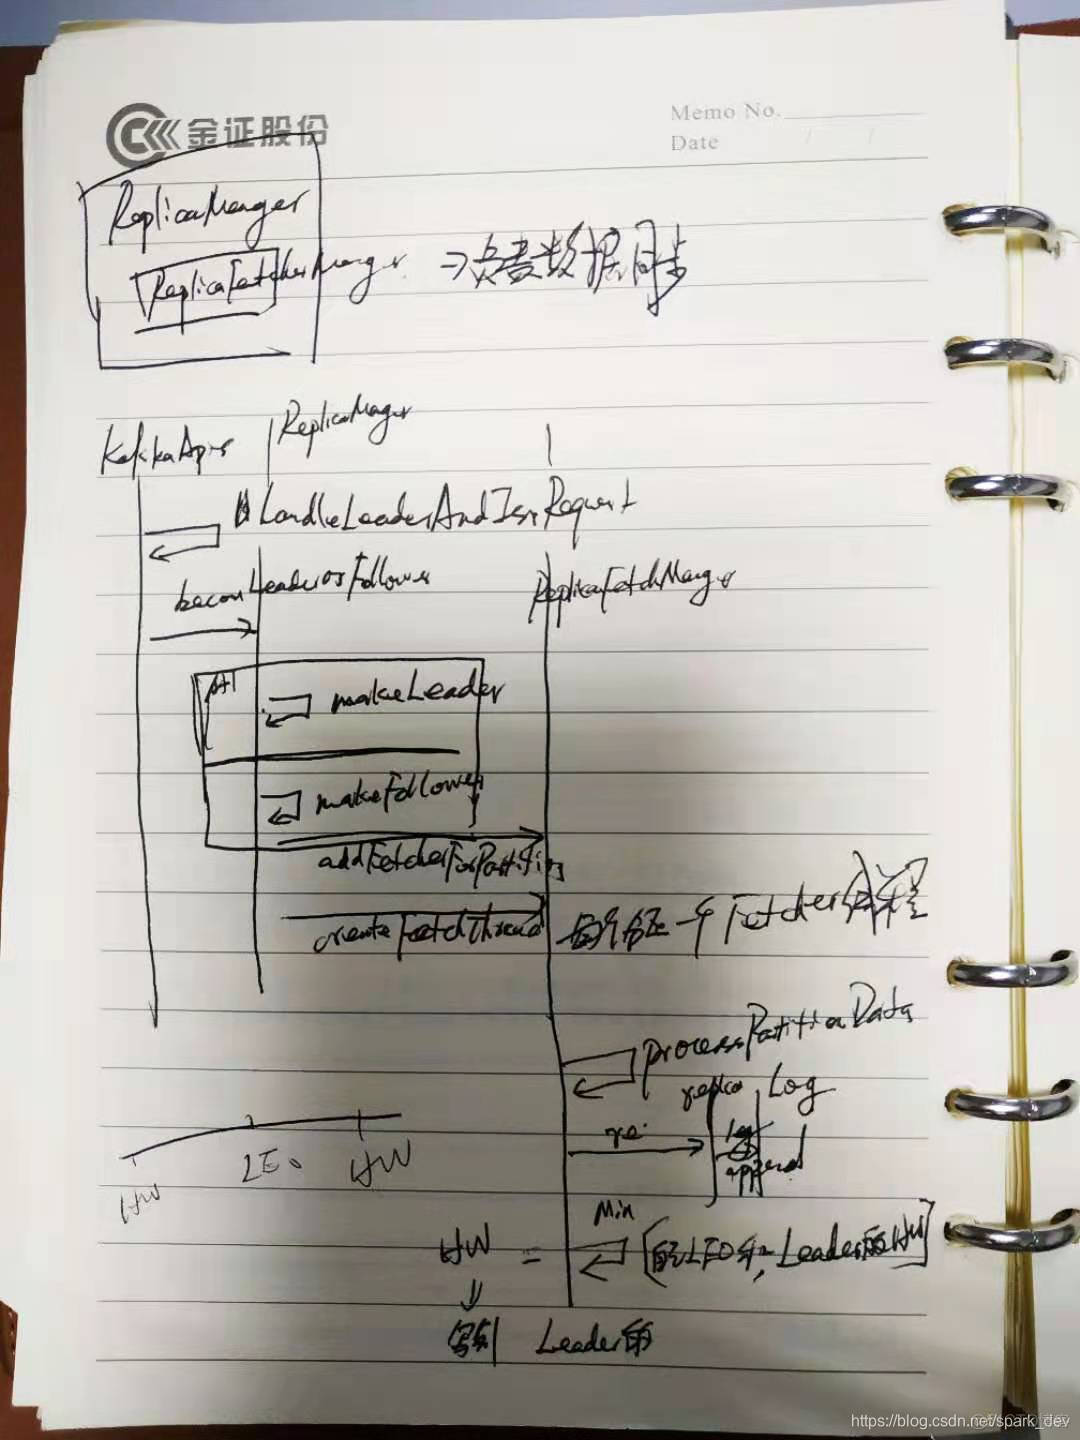 金证股份
Memo No.
Date / /
ReplicaManger
ReplicaFetcherManger → 负责数据同步
KafkaApis ReplicaManger
HandleLeaderAndIsrRequest
becomLeaderOrFollower
ReplicaFetchManger
alt
makeLeader
makeFollower
addFetcherForPartitions
createFetchThread 每分区一个Fetcher线程
processPartitionData
replica Log
re.
log
append
HW LEO HW
Min
HW = [自己LEO和, Leader的HW]
↓
Leader的
https://blog.csdn.net/spark_dev